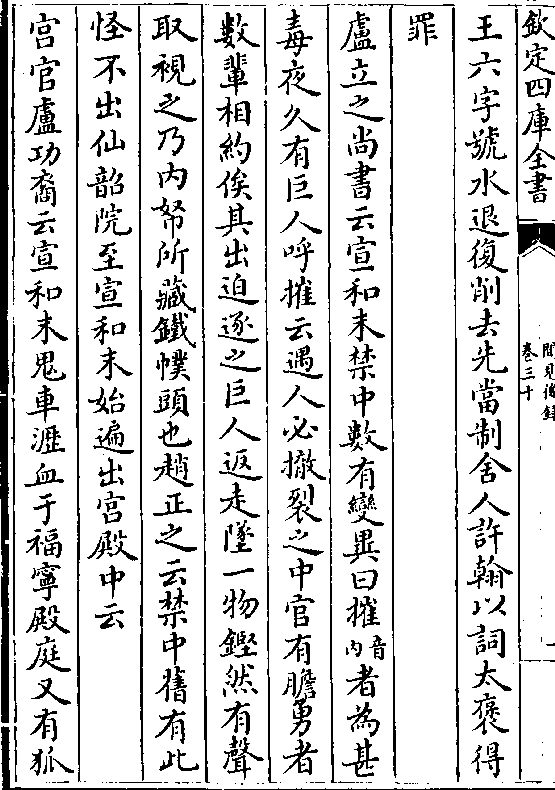 欽定四庫全書
聞見後錄
卷三十
王六字號水退復削去先當制舍人許翰以詞太褒得
罪
盧立之尚書云宣和末禁中數有變異曰㩁音內者為甚
毒夜久有巨人呼㩁云遇人必撤裂之中官有膽勇者
數輩相約俟其出迫逐之巨人返走墜一物鏗然有聲
取視之乃內帑所藏鐵幞頭也趙正之云禁中舊有此
怪不出仙韶院至宣和末始遍出宮殿中云
宮官盧功裔云宣和末鬼車灑血于福寧殿庭又有狐